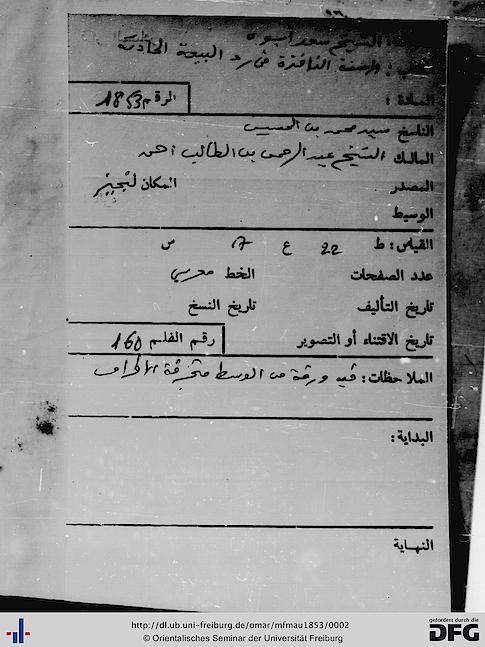 الشيخ
الرقم 1853
المادة :
الناسخ سيد محمد بن
المالك الشيخ عبد الرحمن بن الطالب
المصدر المكان
الوسيط
القياس: ط 22 ع 17 س
عدد الصفحات الخط مغربي
تاريخ التأليف تاريخ النسخ
تاريخ الاقتناء أو التصوير رقم الفلم 160
الملاحظات: فيه ورقة من الوسط الأطراف
البداية:
النهاية
http://dl.ub.uni-freiburg.de/omar/mfmau1853/0002
© Orientalisches Seminar der Universität Freiburg
gefördert durch die
DFG